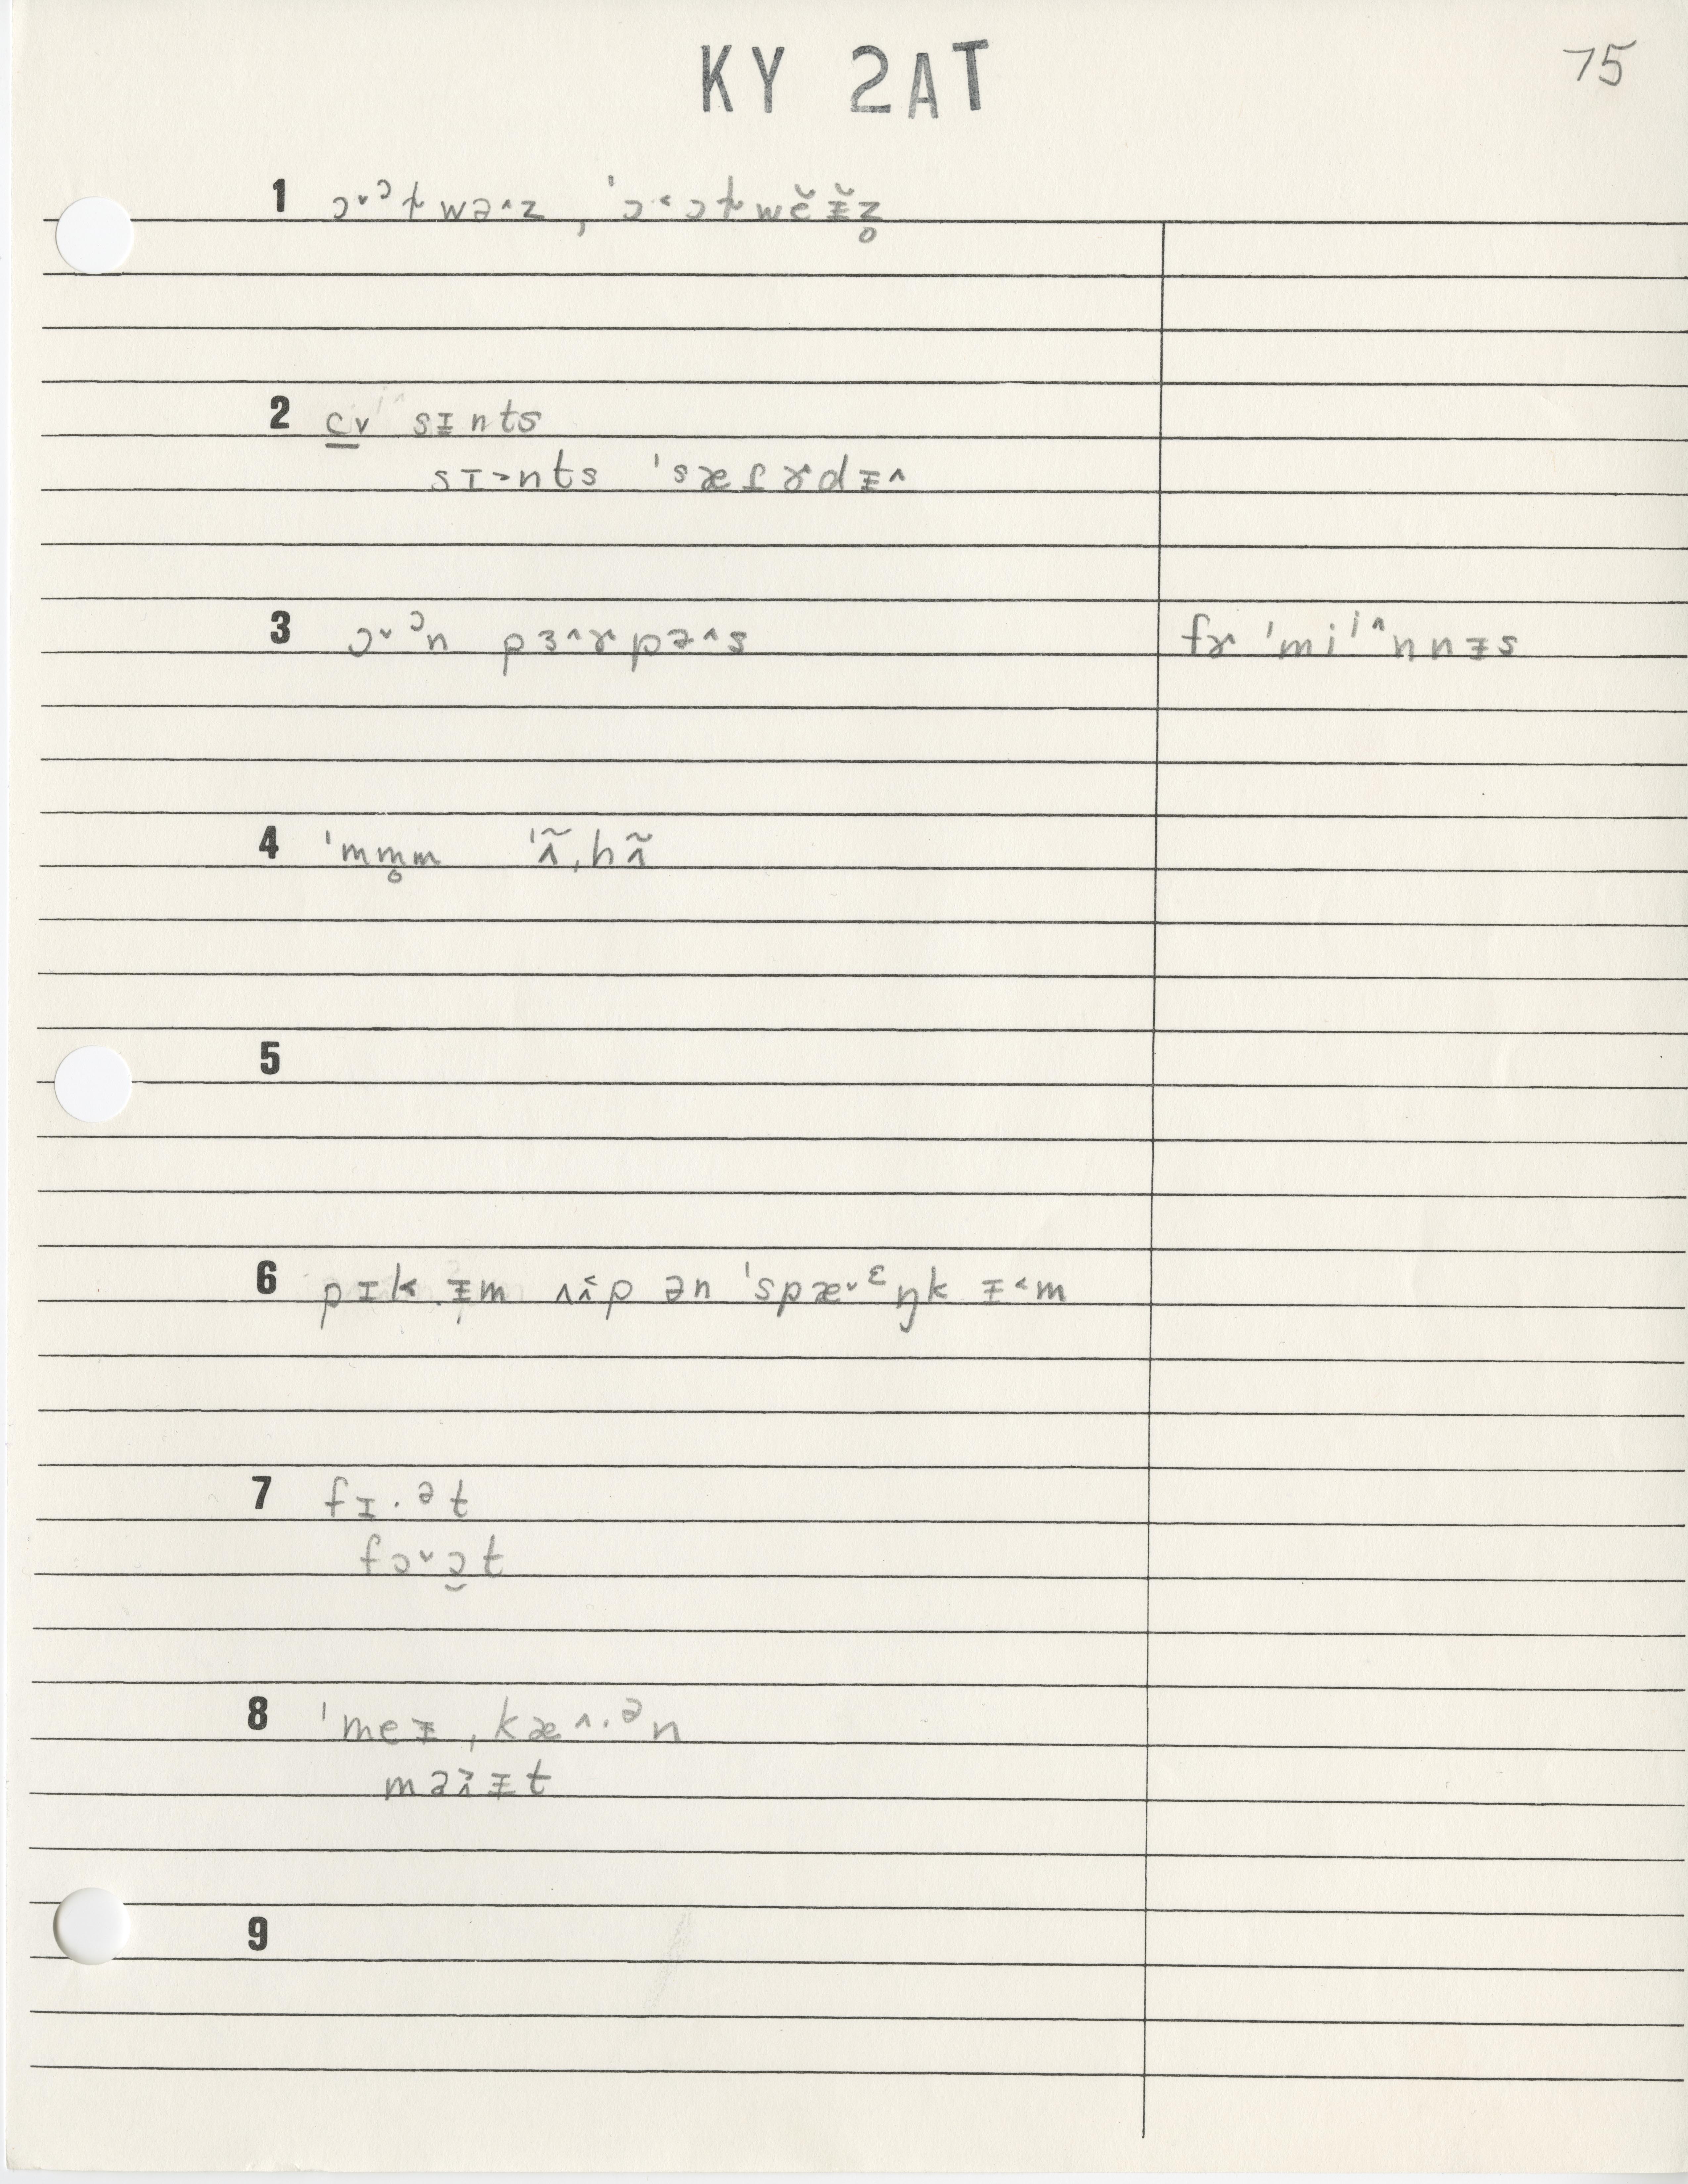 KY 2AT
75
1 ɔ˅ᵓɫwə˄z ˌˈɔ˂ɔɫwĕɪ̵̆z̥
2 cv sɪnts
sɪ˃nts ˈsæɾɚdɪ̵˄
3 ɔ˅ᵓn pɜ˄ɚpə˄s fɚ ˈmiⁱ˄nnɪ̵s
4 ˈmm̥m ˈʌ̃ˌhʌ̃
5
6 pɪk ɪ̵m ʌʌ̂p ən ˈspæ˅ᵋŋk ɪ̵˂m
7 fɪ·ᵊt
fɔ˅ɔ̯t
8 ˈmeɪ̵ ˌkæ˄·ᵊn
9